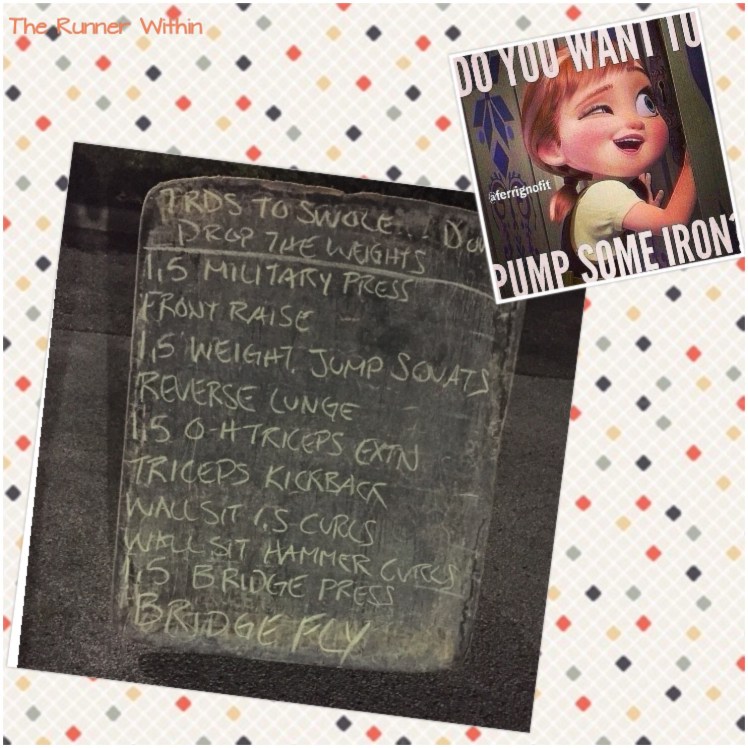 The Runner Within
DO YOU WANT TO
@ferrignofit
PUMP SOME IRON?
TO SWOLE...
DROP THE WEIGHTS
1,5 MILITARY PRESS
FRONT RAISE
1,5 WEIGHT. JUMP SQUATS
REVERSE LUNGE
1,5 O-H TRICEPS EXTN
TRICEPS KICKBACK
WALL SIT 1,5 CURLS
WALL SIT HAMMER CURLS
1,5 BRIDGE PRESS
BRIDGE FLY